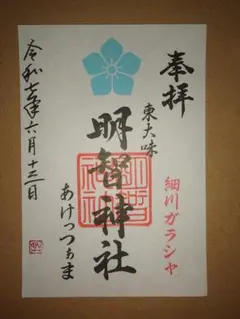 奉拝
細川ガラシャ
東大味
明智神社
あけっつぁま
令和七年六月十三日